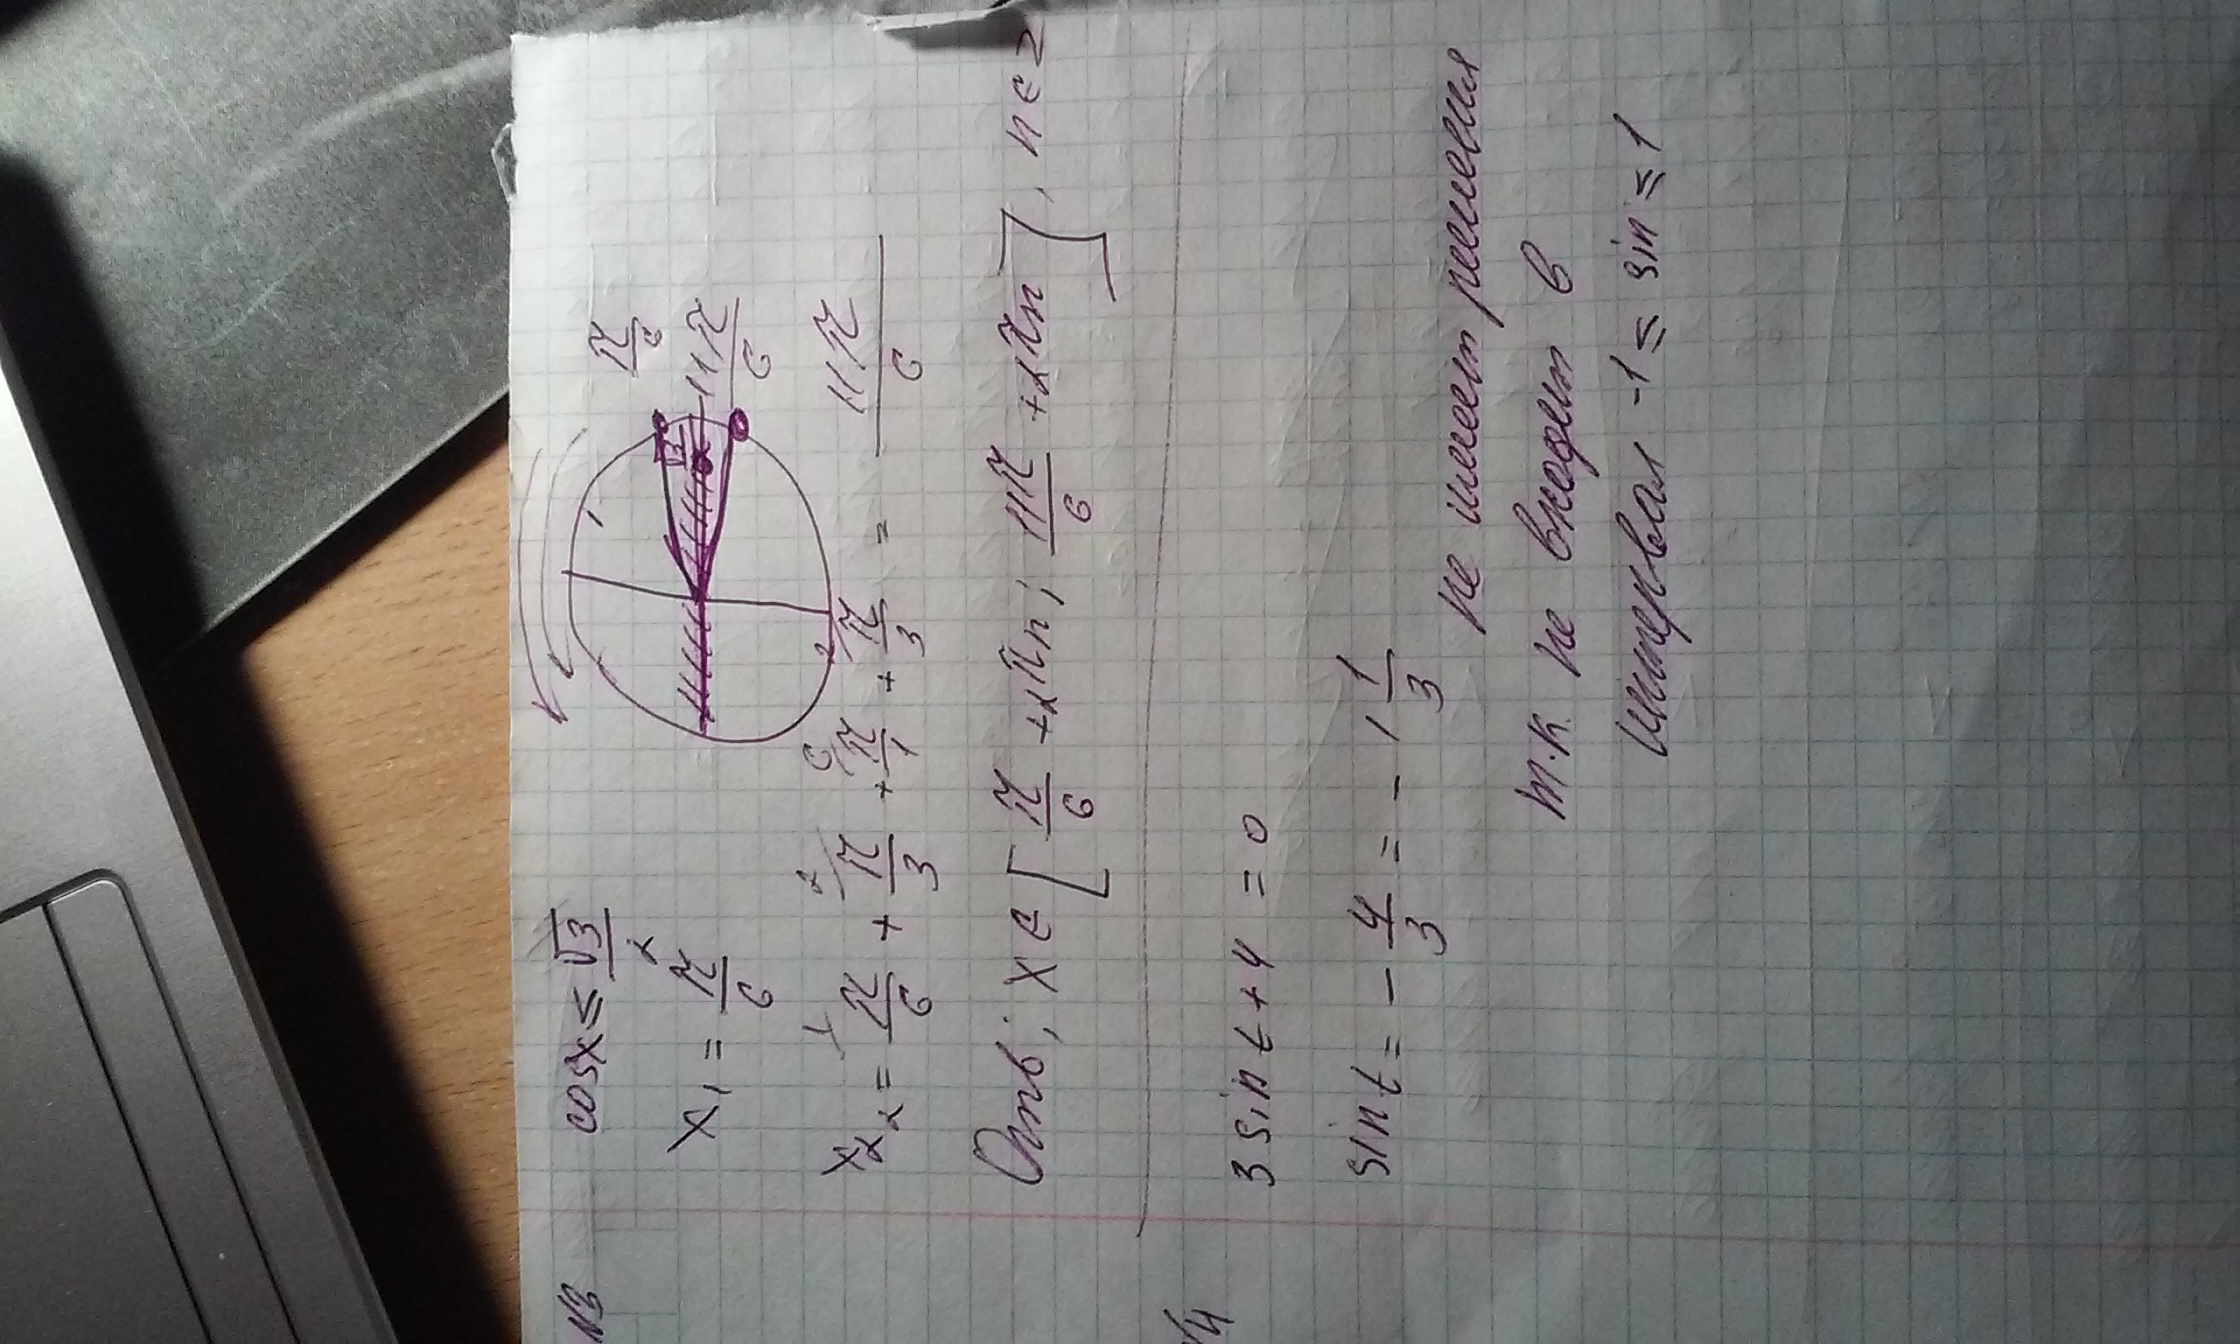 N3 cosx ≤ √3/2
x₁ = π/6
x₂ = π/6 + π/3 + π/1 + π/3 = 11π/6
π/6
11π/6
√3/2
Отв; x ∈ [π/6 + 2πn; 11π/6 + 2πn], n ∈ Z
N4 3 sin t + 4 = 0
sin t = - 4/3 = - 1 1/3 не имеет решения
т.к не входит в
интервал -1 ≤ sin ≤ 1